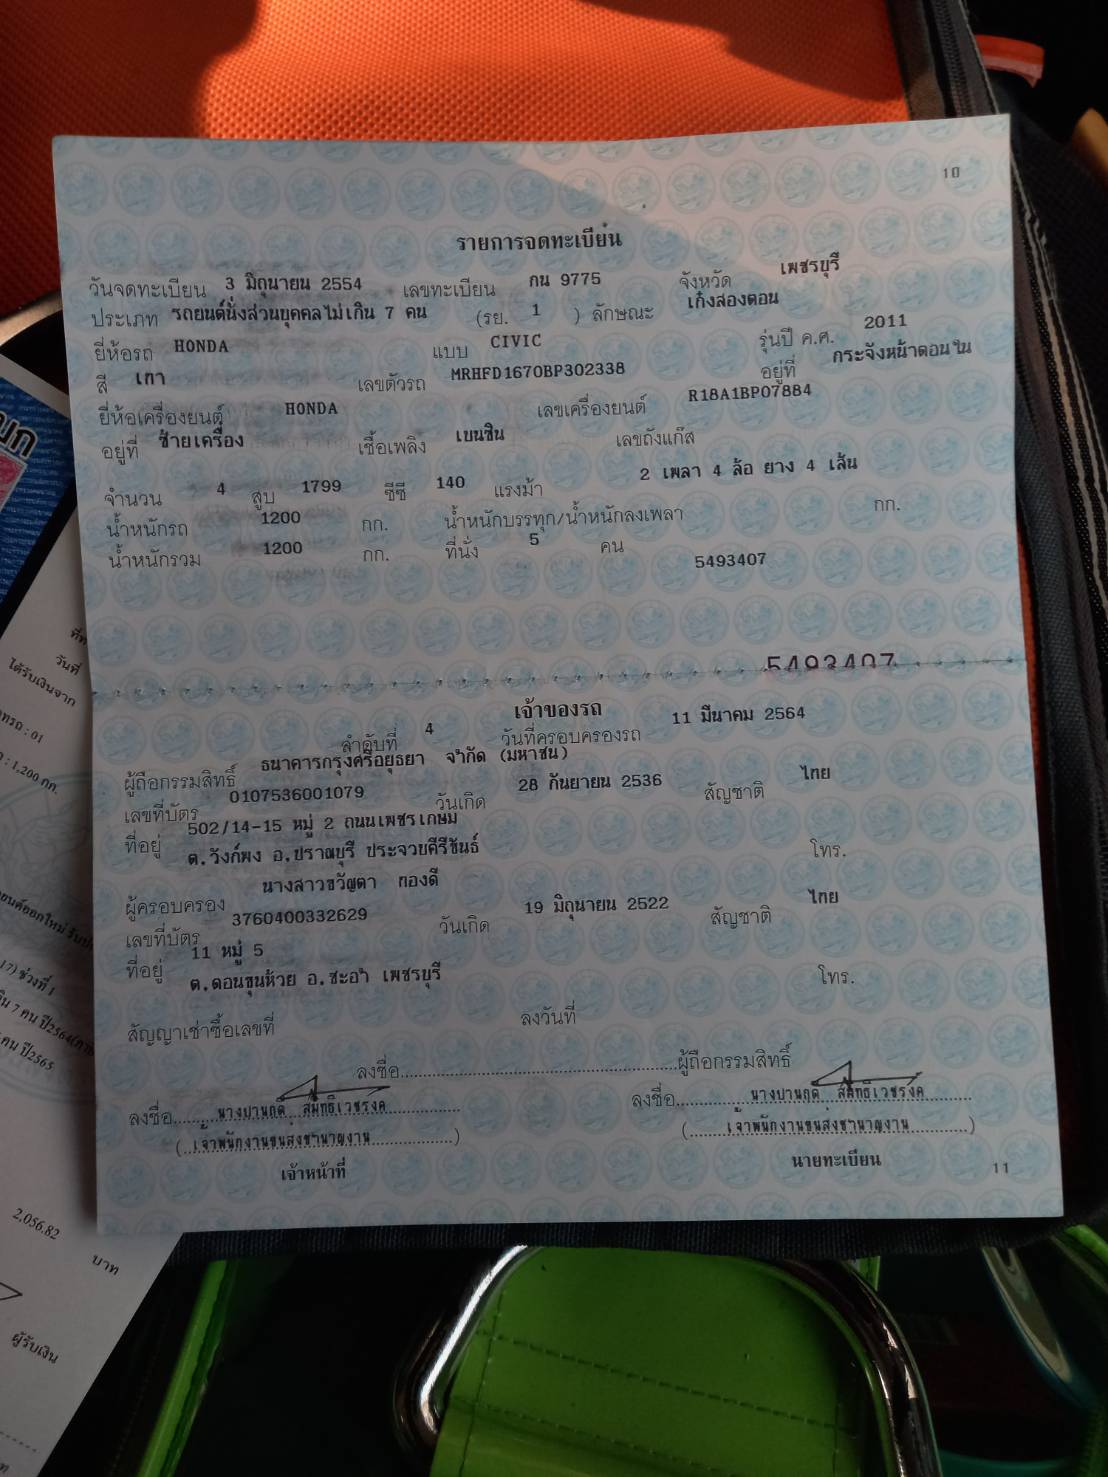 10
รายการจดทะเบียน
วันจดทะเบียน 3 มิถุนายน 2554 เลขทะเบียน กน 9775 จังหวัด เพชรบุรี
ประเภท รถยนต์นั่งส่วนบุคคลไม่เกิน 7 คน (รย. 1 ) ลักษณะ เก๋งสองตอน
ยี่ห้อรถ HONDA แบบ CIVIC รุ่นปี ค.ศ. 2011
สี เทา เลขตัวรถ MRHFD1670BP302338 อยู่ที่ กระจังหน้าตอนใน
ยี่ห้อเครื่องยนต์ HONDA เลขเครื่องยนต์ R18A1BP07884
อยู่ที่ ซ้ายเครื่อง เชื้อเพลิง เบนซิน เลขถังแก๊ส
จำนวน 4 สูบ 1799 ซีซี 140 แรงม้า 2 เพลา 4 ล้อ ยาง 4 เส้น
น้ำหนักรถ 1200 กก. น้ำหนักบรรทุก/น้ำหนักลงเพลา กก.
น้ำหนักรวม 1200 กก. ที่นั่ง 5 คน
5493407
5493407
เจ้าของรถ
ลำดับที่ 4 วันที่ครอบครองรถ 11 มีนาคม 2564
ผู้ถือกรรมสิทธิ์ ธนาคารกรุงศรีอยุธยา จำกัด (มหาชน)
เลขที่บัตร 0107536001079 วันเกิด 28 กันยายน 2536 สัญชาติ ไทย
ที่อยู่ 502/14-15 หมู่ 2 ถนนเพชรเกษม
ต.วังก์พง อ.ปราณบุรี ประจวบคีรีขันธ์ โทร.
ผู้ครอบครอง นางสาวขวัญตา ทองดี
เลขที่บัตร 3760400332629 วันเกิด 19 มิถุนายน 2522 สัญชาติ ไทย
ที่อยู่ 11 หมู่ 5
ต.ดอนขุนห้วย อ.ชะอำ เพชรบุรี โทร.
สัญญาเช่าซื้อเลขที่ ลงวันที่
ลงชื่อ ผู้ถือกรรมสิทธิ์
ลงชื่อ นางปานฤดี ลงชื่อ นางปานฤดี
(เจ้าพนักงานขนส่งชำนาญงาน) (เจ้าพนักงานขนส่งชำนาญงาน)
เจ้าหน้าที่ นายทะเบียน
11
วันที่
ได้รับเงินจาก
: 01
: 1,200 กก.
17) ช่วงที่ 1
7 คน ปี2564
คน ปี2565
2,056.82
บาท
ผู้รับเงิน